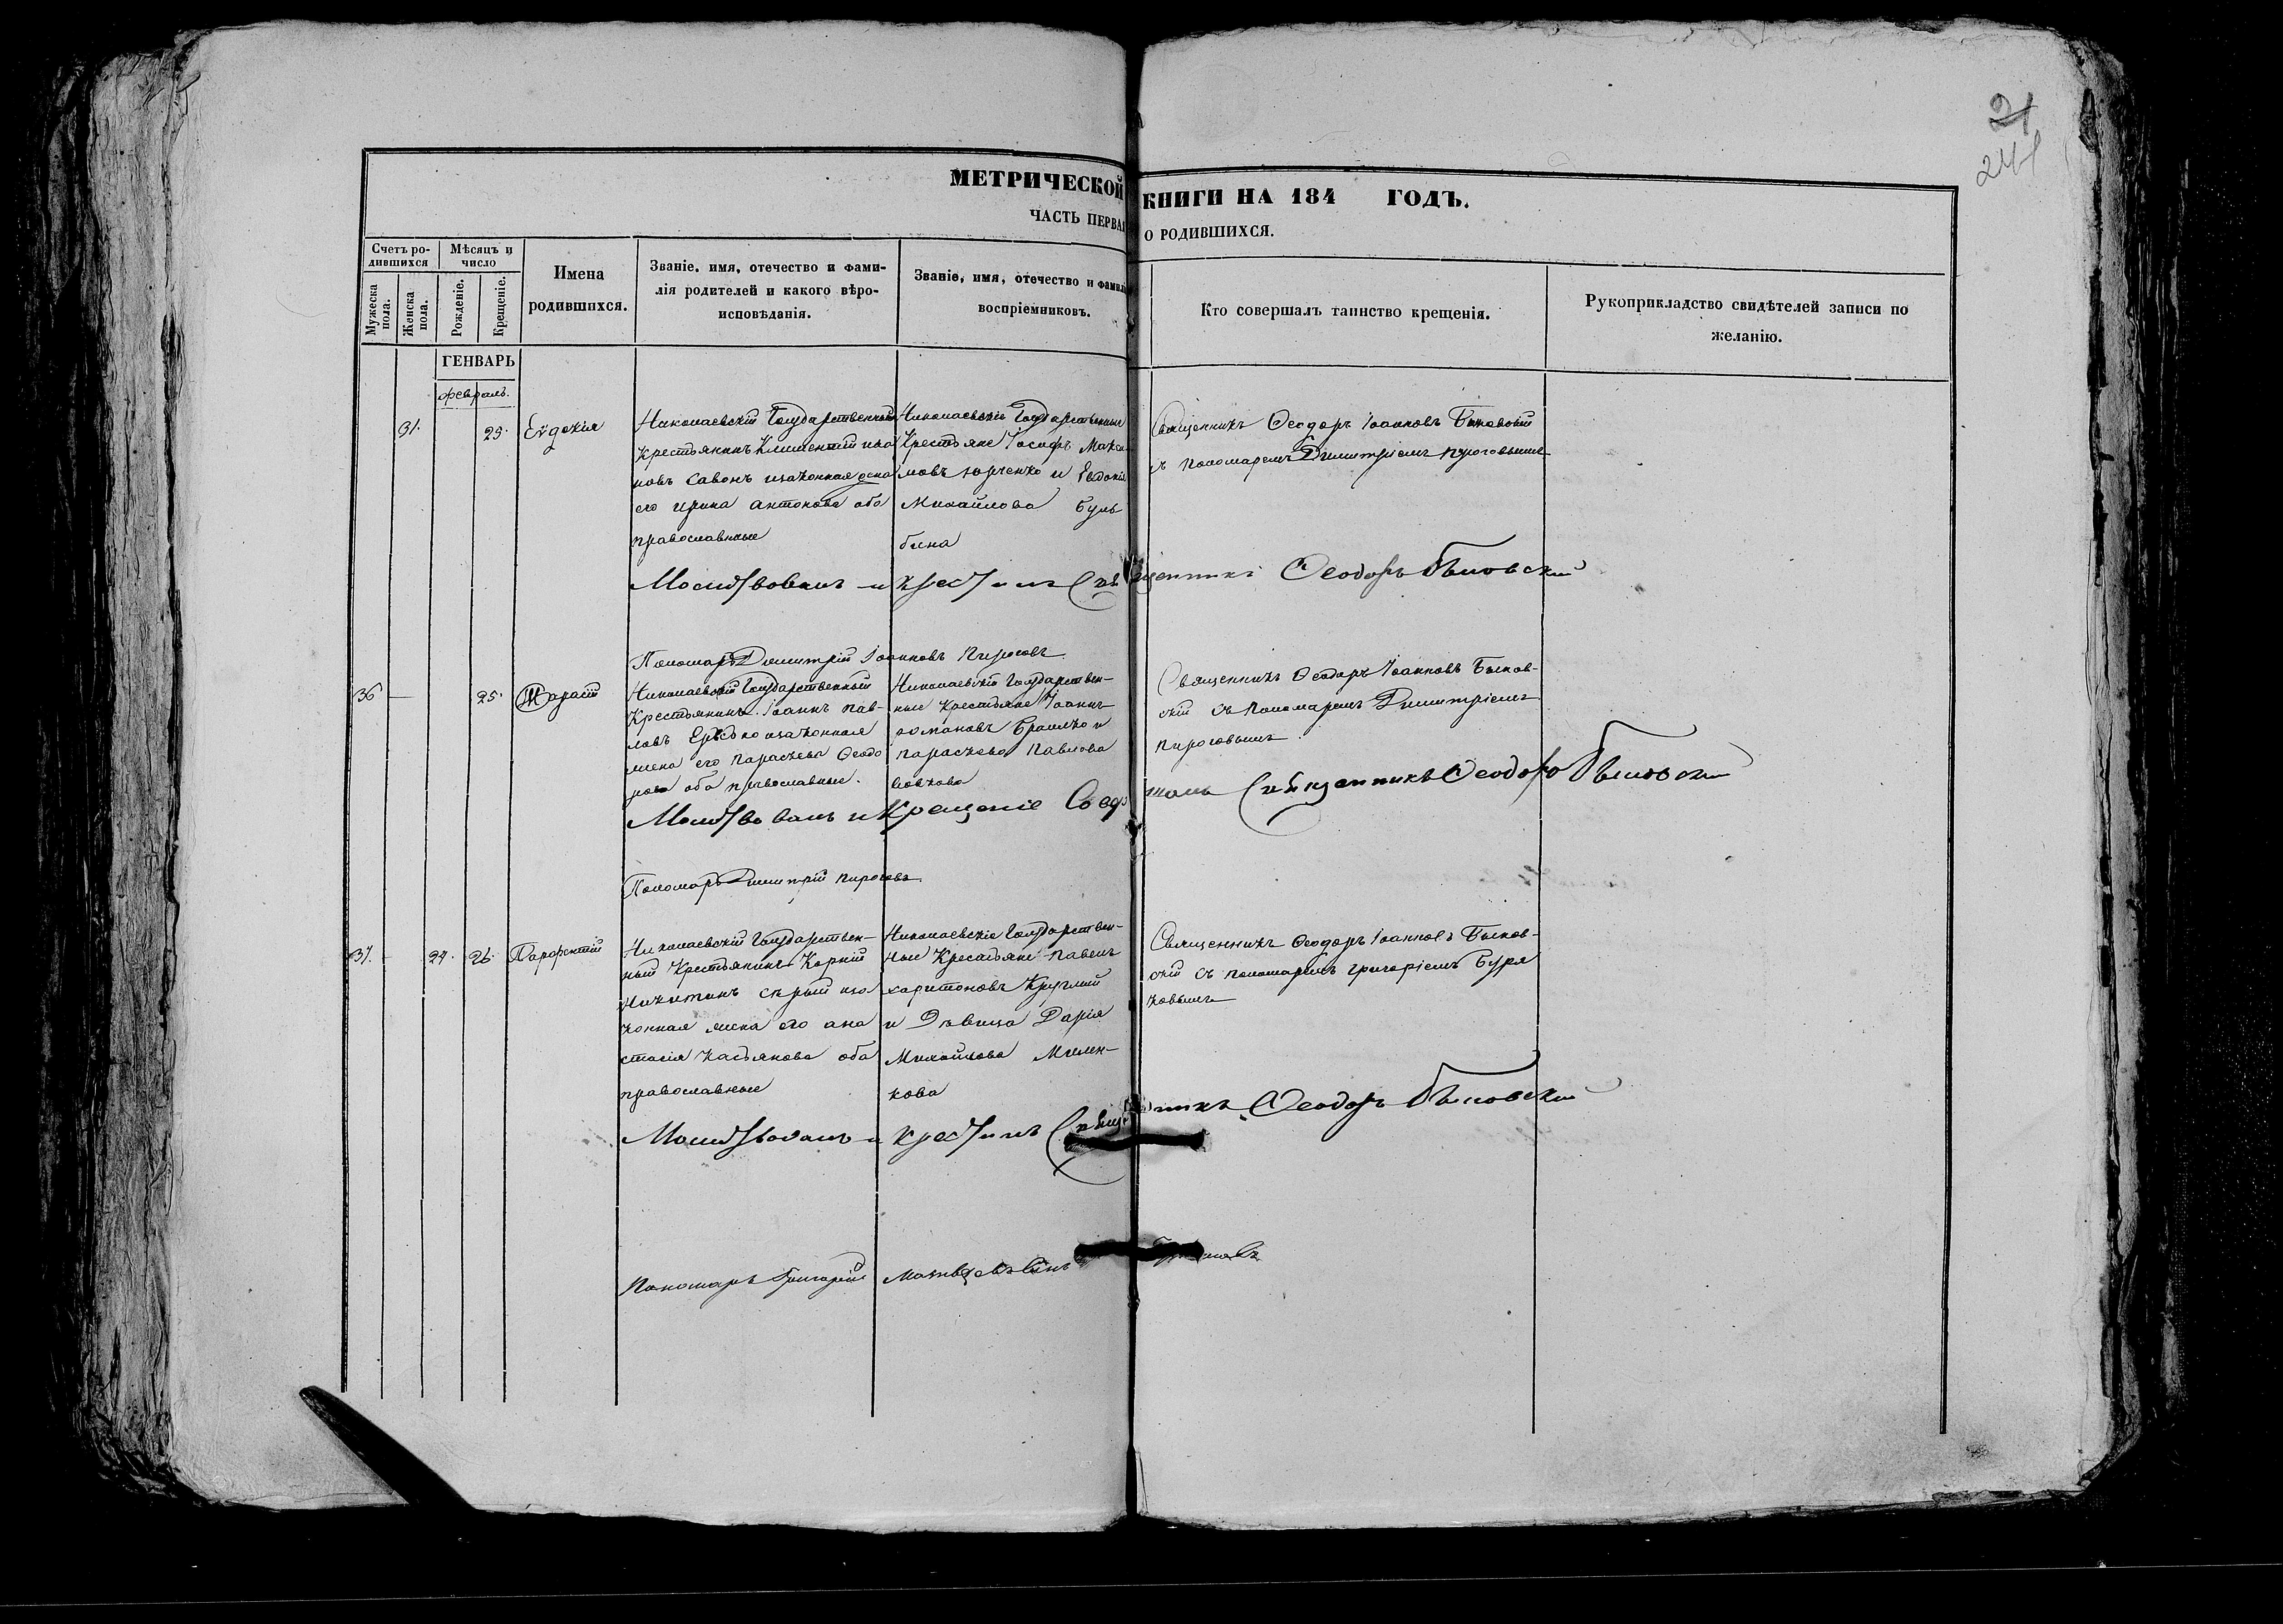 21
241
МЕТРИЧЕСКОЙ КНИГИ НА 184 ГОДЪ.
ЧАСТЬ ПЕРВАЯ О РОДИВШИХСЯ.
Счетъ ро-
дившихся
Мужеска пола.
Женска пола.
Мѣсяцъ и
число
Рожденіе.
Крещеніе.
Имена
родившихся.
Званіе, имя, отечество и фами-
лія родителей и какого вѣро-
исповѣданія.
Званіе, имя, отечество и фамилі
воспріемниковъ.
Кто совершалъ таинство крещенія.
Рукоприкладство свидѣтелей записи по
желанію.
ГЕНВАРЬ
февраль.
31.
25.
Еѵдокія
Николаевскій Государственный
Крестьянинъ Климентій ива
новъ Савонъ изаконная жена
его ирина антонова оба
православные
Николаевскіе Государственные
Крестьяне Іосифъ Макси
мовъ юрченко и Евдокія
Михайлова Буль
бина
Священникъ Ѳеодоръ Іоанновъ Быковскій
съ пономаремъ Димитріемъ пироговымъ
Молитвовалъ и крестилъ Священникъ Ѳеодоръ Быковскій
Пономарь Димитрій Іоанновъ Пироговъ
36
25.
Тарасій
Николаевскій Государственный
Крестьянинъ Іоаннъ пав-
ловъ изаконная
жена его параскева Ѳеодо
рова оба православные.
Николаевскіе Государствен-
ные Крестьяне Іоаннъ
романовъ и
параскева Павлова
Священникъ Ѳеодоръ Іоанновъ Быков-
скій съ пономаремъ Димитріемъ
пироговымъ.
Молитвовалъ и Крещеніе Совершалъ Священникъ Ѳеодоръ Быковскій
Пономарь Димитрій пироговъ.
37.
24.
26.
Парфентій
Николаевскій Государствен-
ный Крестьянинъ Корній
Никитинъ Сѣрый иза
конная жена его ана
стасія Касьянова оба
православные
Николаевскіе Государствен-
ные Крестьяне павелъ
харитоновъ Круглый
и Дѣвица Дарія
Михайлова Милен-
кова
Священникъ Ѳеодоръ Іоанновъ Быков-
скій съ пономаремъ григоріемъ Буря
ковымъ
Молитвовалъ и крестилъ Священникъ Ѳеодоръ Быковскій
Пономарь Григорій Матвѣевъ Сынъ Буряковъ